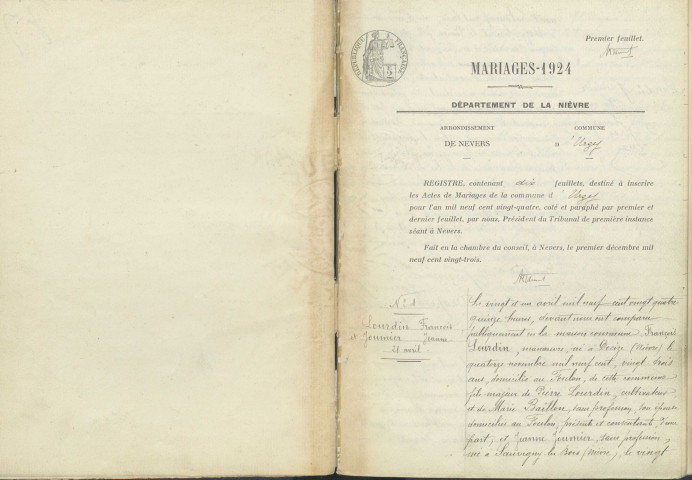 Premier feuillet.
RÉPUBLIQUE FRANÇAISE
MARIAGES-1924
DÉPARTEMENT DE LA NIÈVRE
ARRONDISSEMENT
COMMUNE
DE NEVERS
D'Urzy
REGISTRE, contenant feuillets, destiné à inscrire
les Actes de Mariages de la commune d'Urzy
pour l'an mil neuf cent vingt-quatre, coté et paraphé par premier et
dernier feuillet, par nous, Président du Tribunal de première instance
séant à Nevers.
Fait en la chambre du conseil, à Nevers, le premier décembre mil
neuf cent vingt-trois.
N° 1
Lourdin François
et Joumier Jeanne
21 avril
Le vingt et un avril mil neuf cent vingt quatre
quinze heures, devant nous ont comparu
publiquement en la maison commune François
Lourdin, manœuvre, né à Decize (Nièvre) le
quatorze novembre mil neuf cent, vingt trois
ans, domicilié au Foulon, de cette commune
fils majeur de Pierre Lourdin, cultivateur
et de Marie Baillon, sans profession, son épouse
domiciliés au Foulon, présents et consentants d'une
part; et Jeanne Joumier, sans profession,
née à Sauvigny les Bois (Nièvre), le vingt